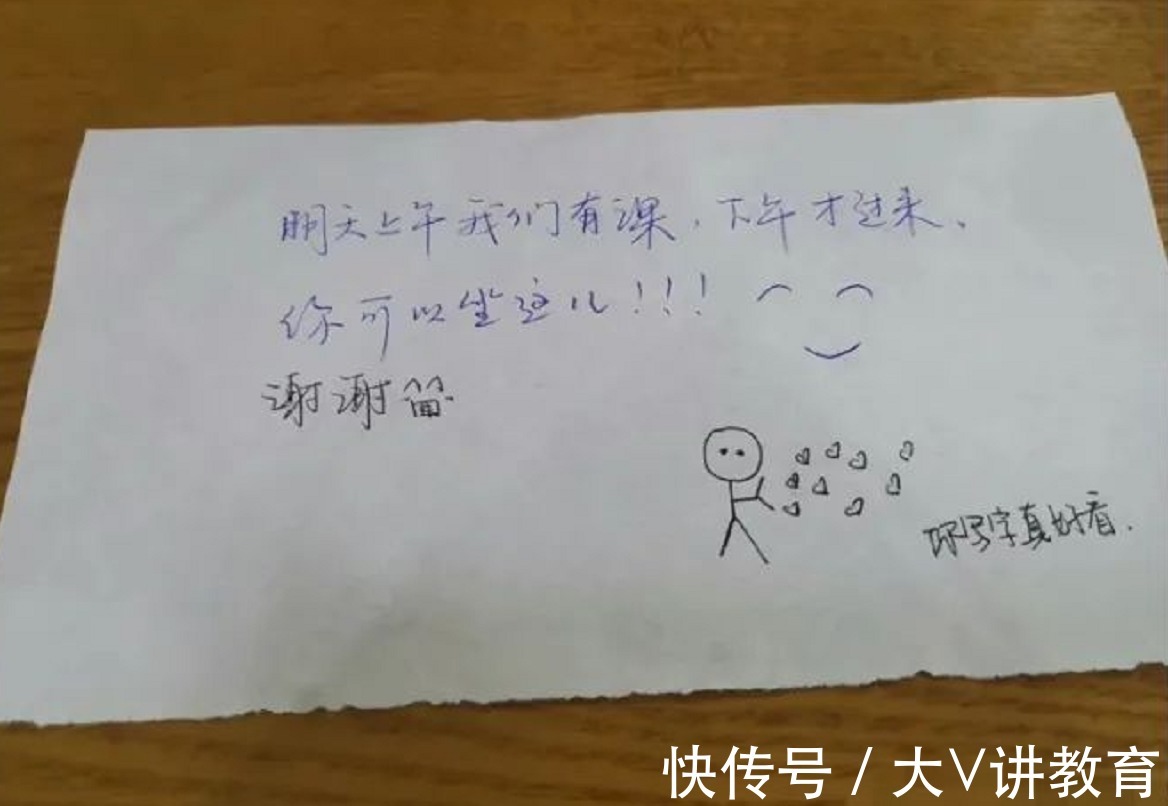 明天上午我们有课，下午才过来.
你可以坐这儿!!!
谢谢
你写字真好看.
快传号 / 大V讲教育